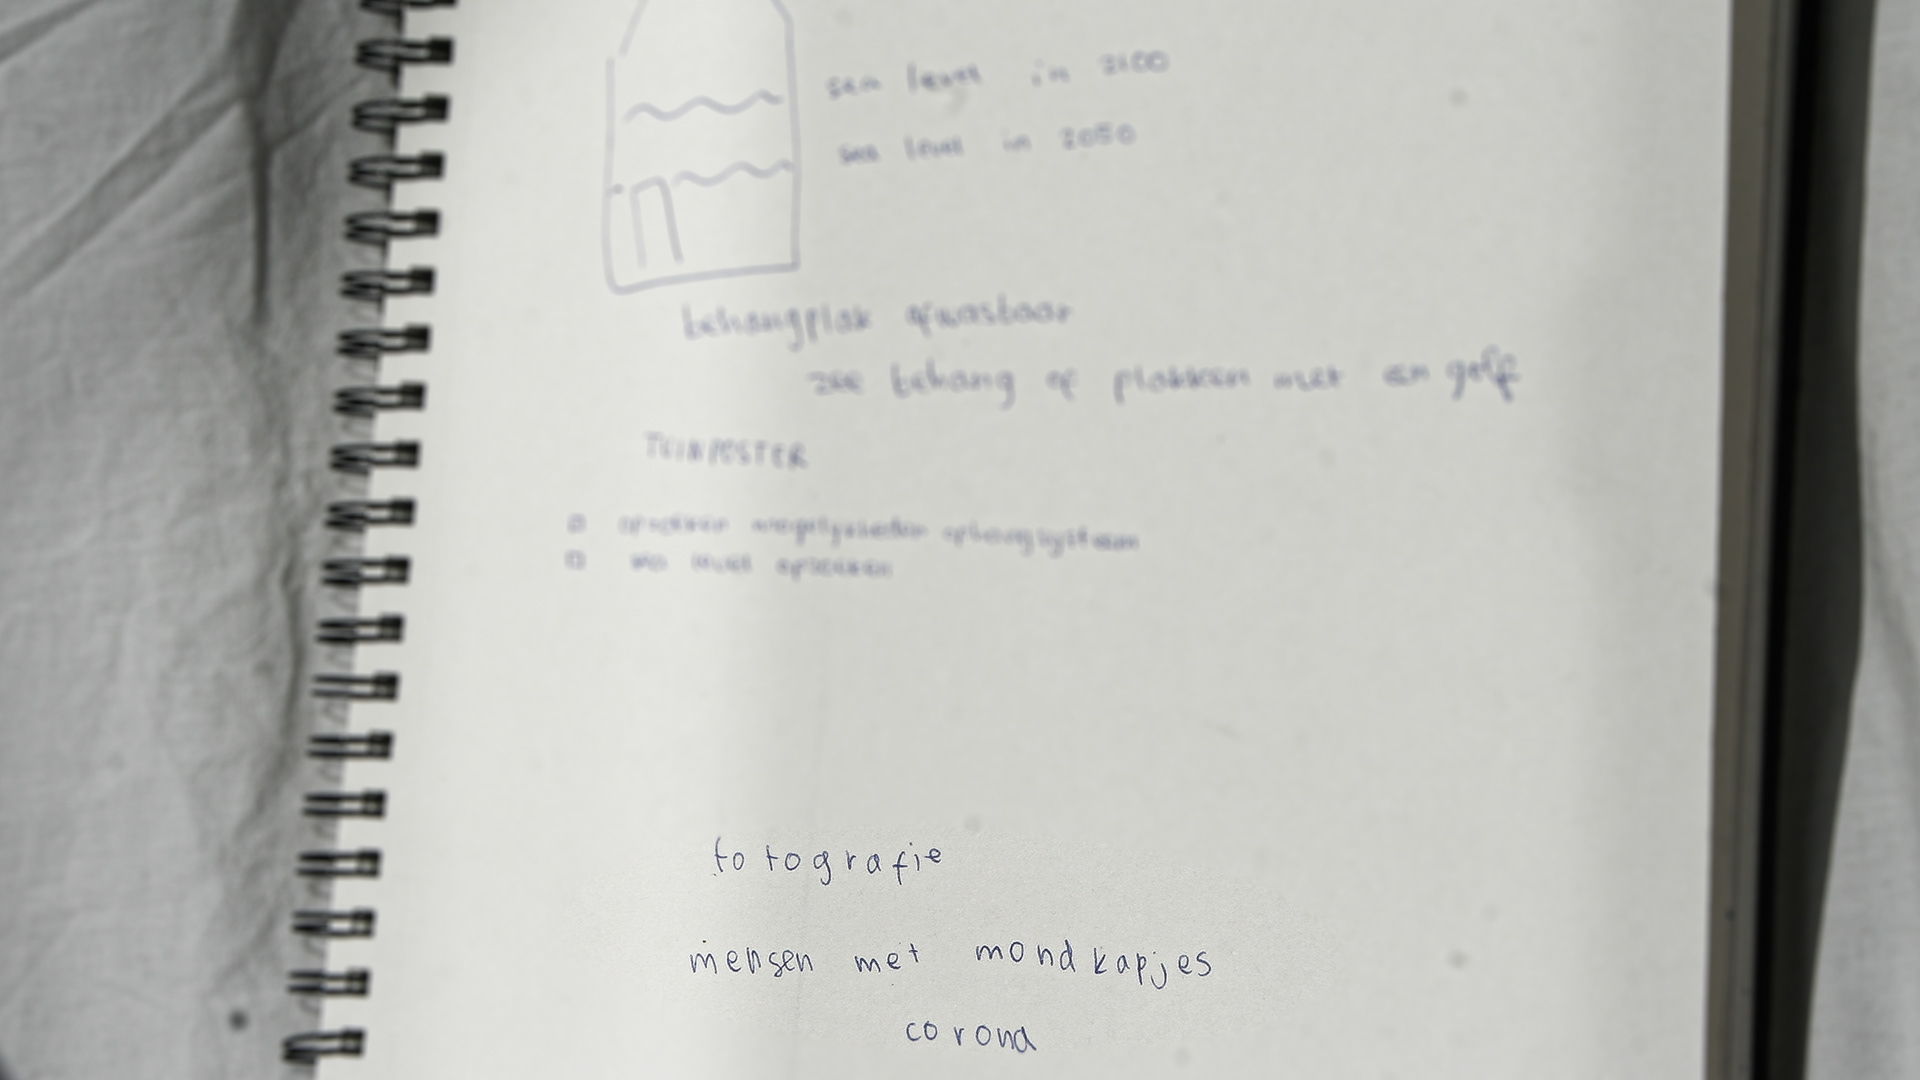 sea level in 2100
sea level in 2050
behangplak afwasbaar
zee behang op plakken met en golf
TUINPOSTER
ophangsysteem
totografie
mensen met mondkapjes
corona